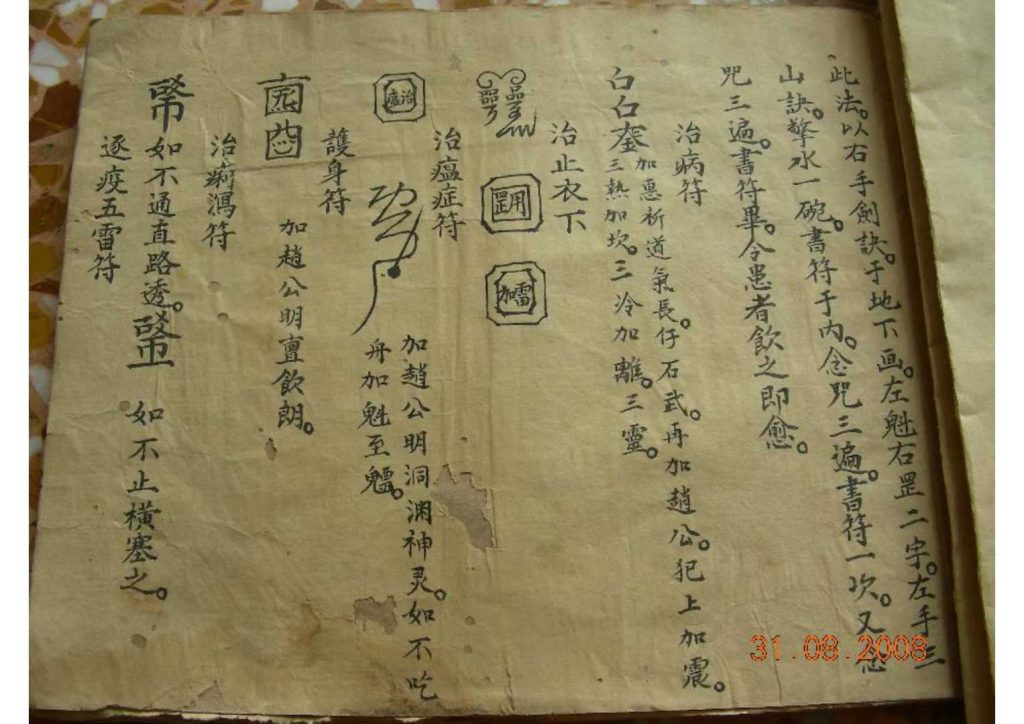 此法。以右手劍訣。于地下画。左魁右罡二字。左手三
山訣。擎水一碗。書符于內。念咒三遍。書符一次。又念
咒三遍。書符畢。令患者飲之即愈。
治病符
加惠祈道氣長仔石武。再加趙公。犯上加震。
三熱加坎。三冷加離。三靈。
治止衣下
治瘟症符
加趙公明洞渊神灵。如不吃
舟加魁至
護身符
加趙公明亶飲朗。
治痢瀉符
如不通直路透。
如不止橫塞之。
逐疫五雷符
31.08.2008